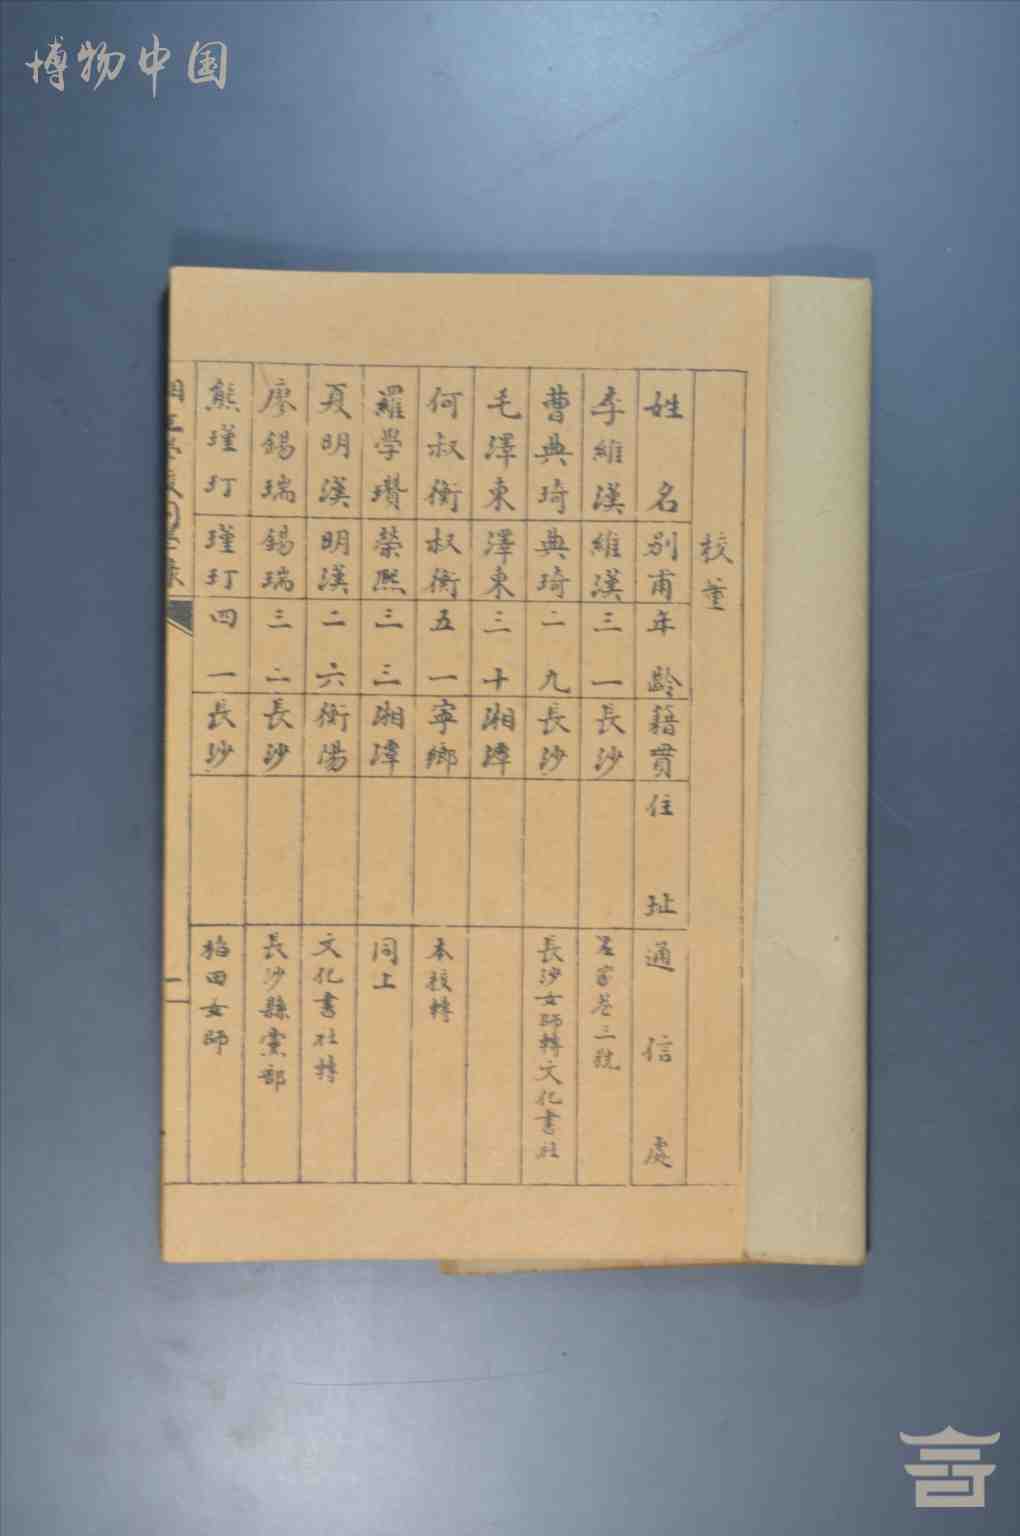 博物中国
校董
姓名 別甫 年齡 籍貫 住址 通信處
李維漢 維漢 三一 長沙
曹典琦 典琦 二九 長沙 長沙女師轉文化書社
毛澤東 澤東 三十 湘潭
何叔衡 叔衡 五一 寧鄉 本校轉
羅學瓚 榮熙 三三 湘潭 同上
夏明漢 明漢 二六 衡陽 文化書社轉
廖錫瑞 錫瑞 三二 長沙 長沙縣黨部
熊瑾玎 瑾玎 四一 長沙 稻田女師
一